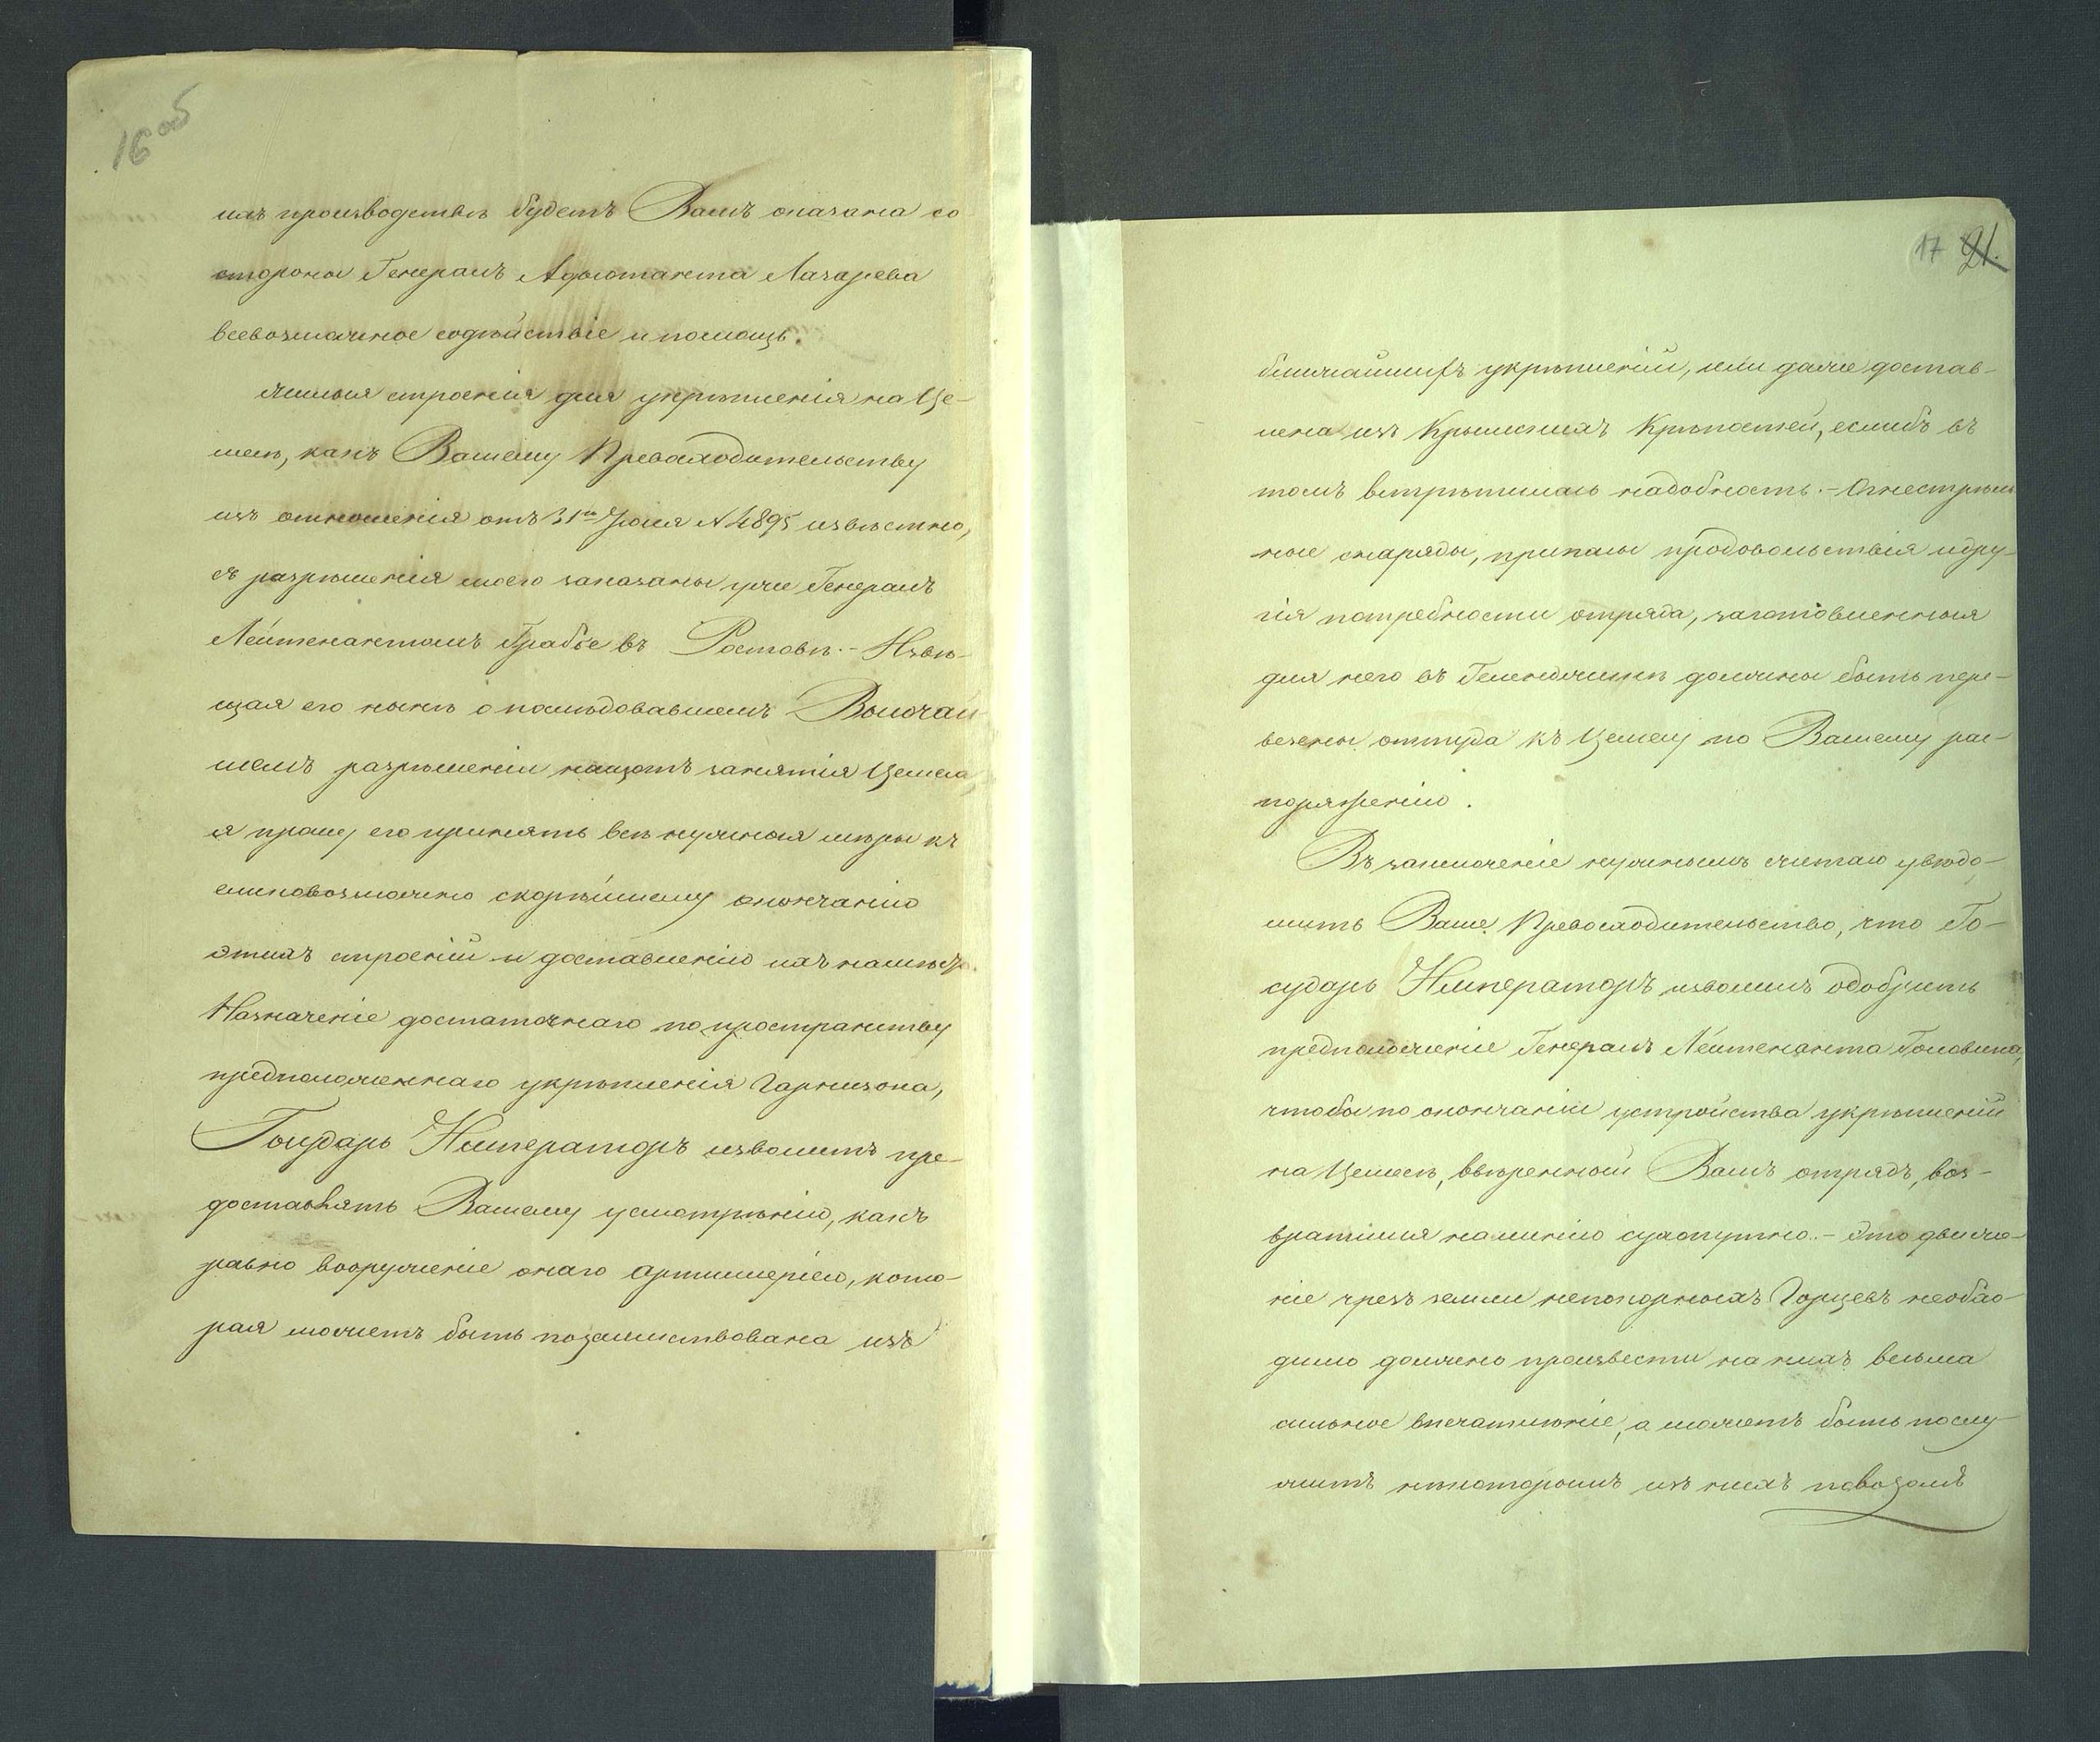 16 об
ихъ производствѣ будетъ Вамъ оказана со
стороны Генералъ Адъютанта Лазарева
всевозможное содѣйствіе и помощь.
Жилыя строенія для укрѣпленія на Це-
месѣ, какъ Вашему Превосходительству
изъ отношенія отъ 31го Іюля № 4895 извѣстно,
съ разрѣшенія моего заказаны уже Генералъ
Лейтенантомъ Граббе въ Ростовѣ. - Извѣ-
щая его нынѣ о послѣдовавшемъ Высочай-
шемъ разрѣшеніи насчотъ занятія Цемеса,
я прошу его принять всѣ нужныя мѣры къ
елико возможно скорѣйшему окончанію
этихъ строеній и доставленію ихъ на мѣсто.
Назначеніе достаточнаго по пространству
предположеннаго укрѣпленія Гарнизона,
Государь Императоръ изволитъ пре-
доставлять Вашему усмотрѣнію, какъ
равно вооруженіе онаго артиллеріею, кото-
рая можетъ быть позаимствована изъ
17 21.
ближайшихъ укрѣпленій, или даже достав-
лена изъ Крымскихъ Крѣпостей, еслибъ въ
томъ встрѣтилась надобность. - Огнестрѣль
ные снаряды, припасы продовольствія и дру-
гія потребности отряда, заготовленныя
для него въ Геленджикѣ должны быть пере-
везены оттуда къ Цемесу по Вашему рас-
поряженію.
Въ заключеніе нужнымъ считаю увѣдо-
мить Ваше Превосходительство, что Го-
сударь Императоръ изволилъ одобрить
предположеніе Генералъ Лейтенанта Головина,
чтобы по окончаніи устройства укрѣпленій
на Цемесѣ, ввѣренный Вамъ отрядъ, воз-
вратился на линію сухопутно. - Это движе-
ніе чрезъ земли непокорныхъ Горцевъ необхо-
димо должно произвести на нихъ весьма
сильное впечатлѣніе, а можетъ быть послу-
житъ нѣкоторымъ изъ нихъ поводомъ